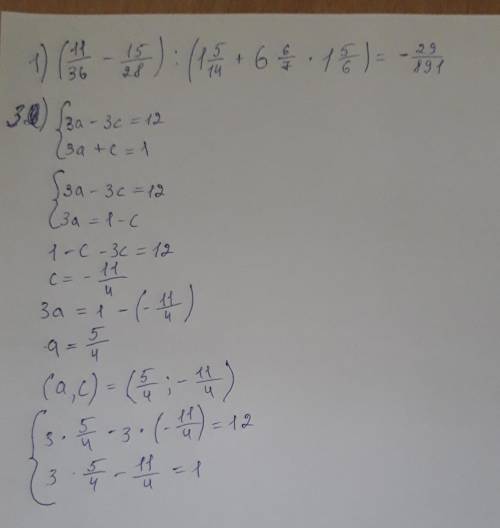 1) (11/36 - 15/28) : (1 5/14 + 6 6/7 · 1 5/6) = - 29/891
3.) { 3a - 3c = 12
3a + c = 1
{ 3a - 3c = 12
3a = 1 - c
1 - c - 3c = 12
c = - 11/4
3a = 1 - (- 11/4)
a = 5/4
(a, c) = (5/4 ; - 11/4)
{ 3 · 5/4 - 3 · (- 11/4) = 12
3 · 5/4 - 11/4 = 1